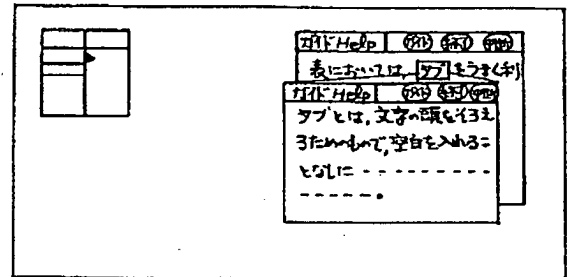 ガイドHelp
表においては、タブをうまく利
ガイドHelp
タブとは、文字の頭をそろえ
るためのもので、空白を入れるこ
となしに - - - - - - - - -
- - - - - - 。